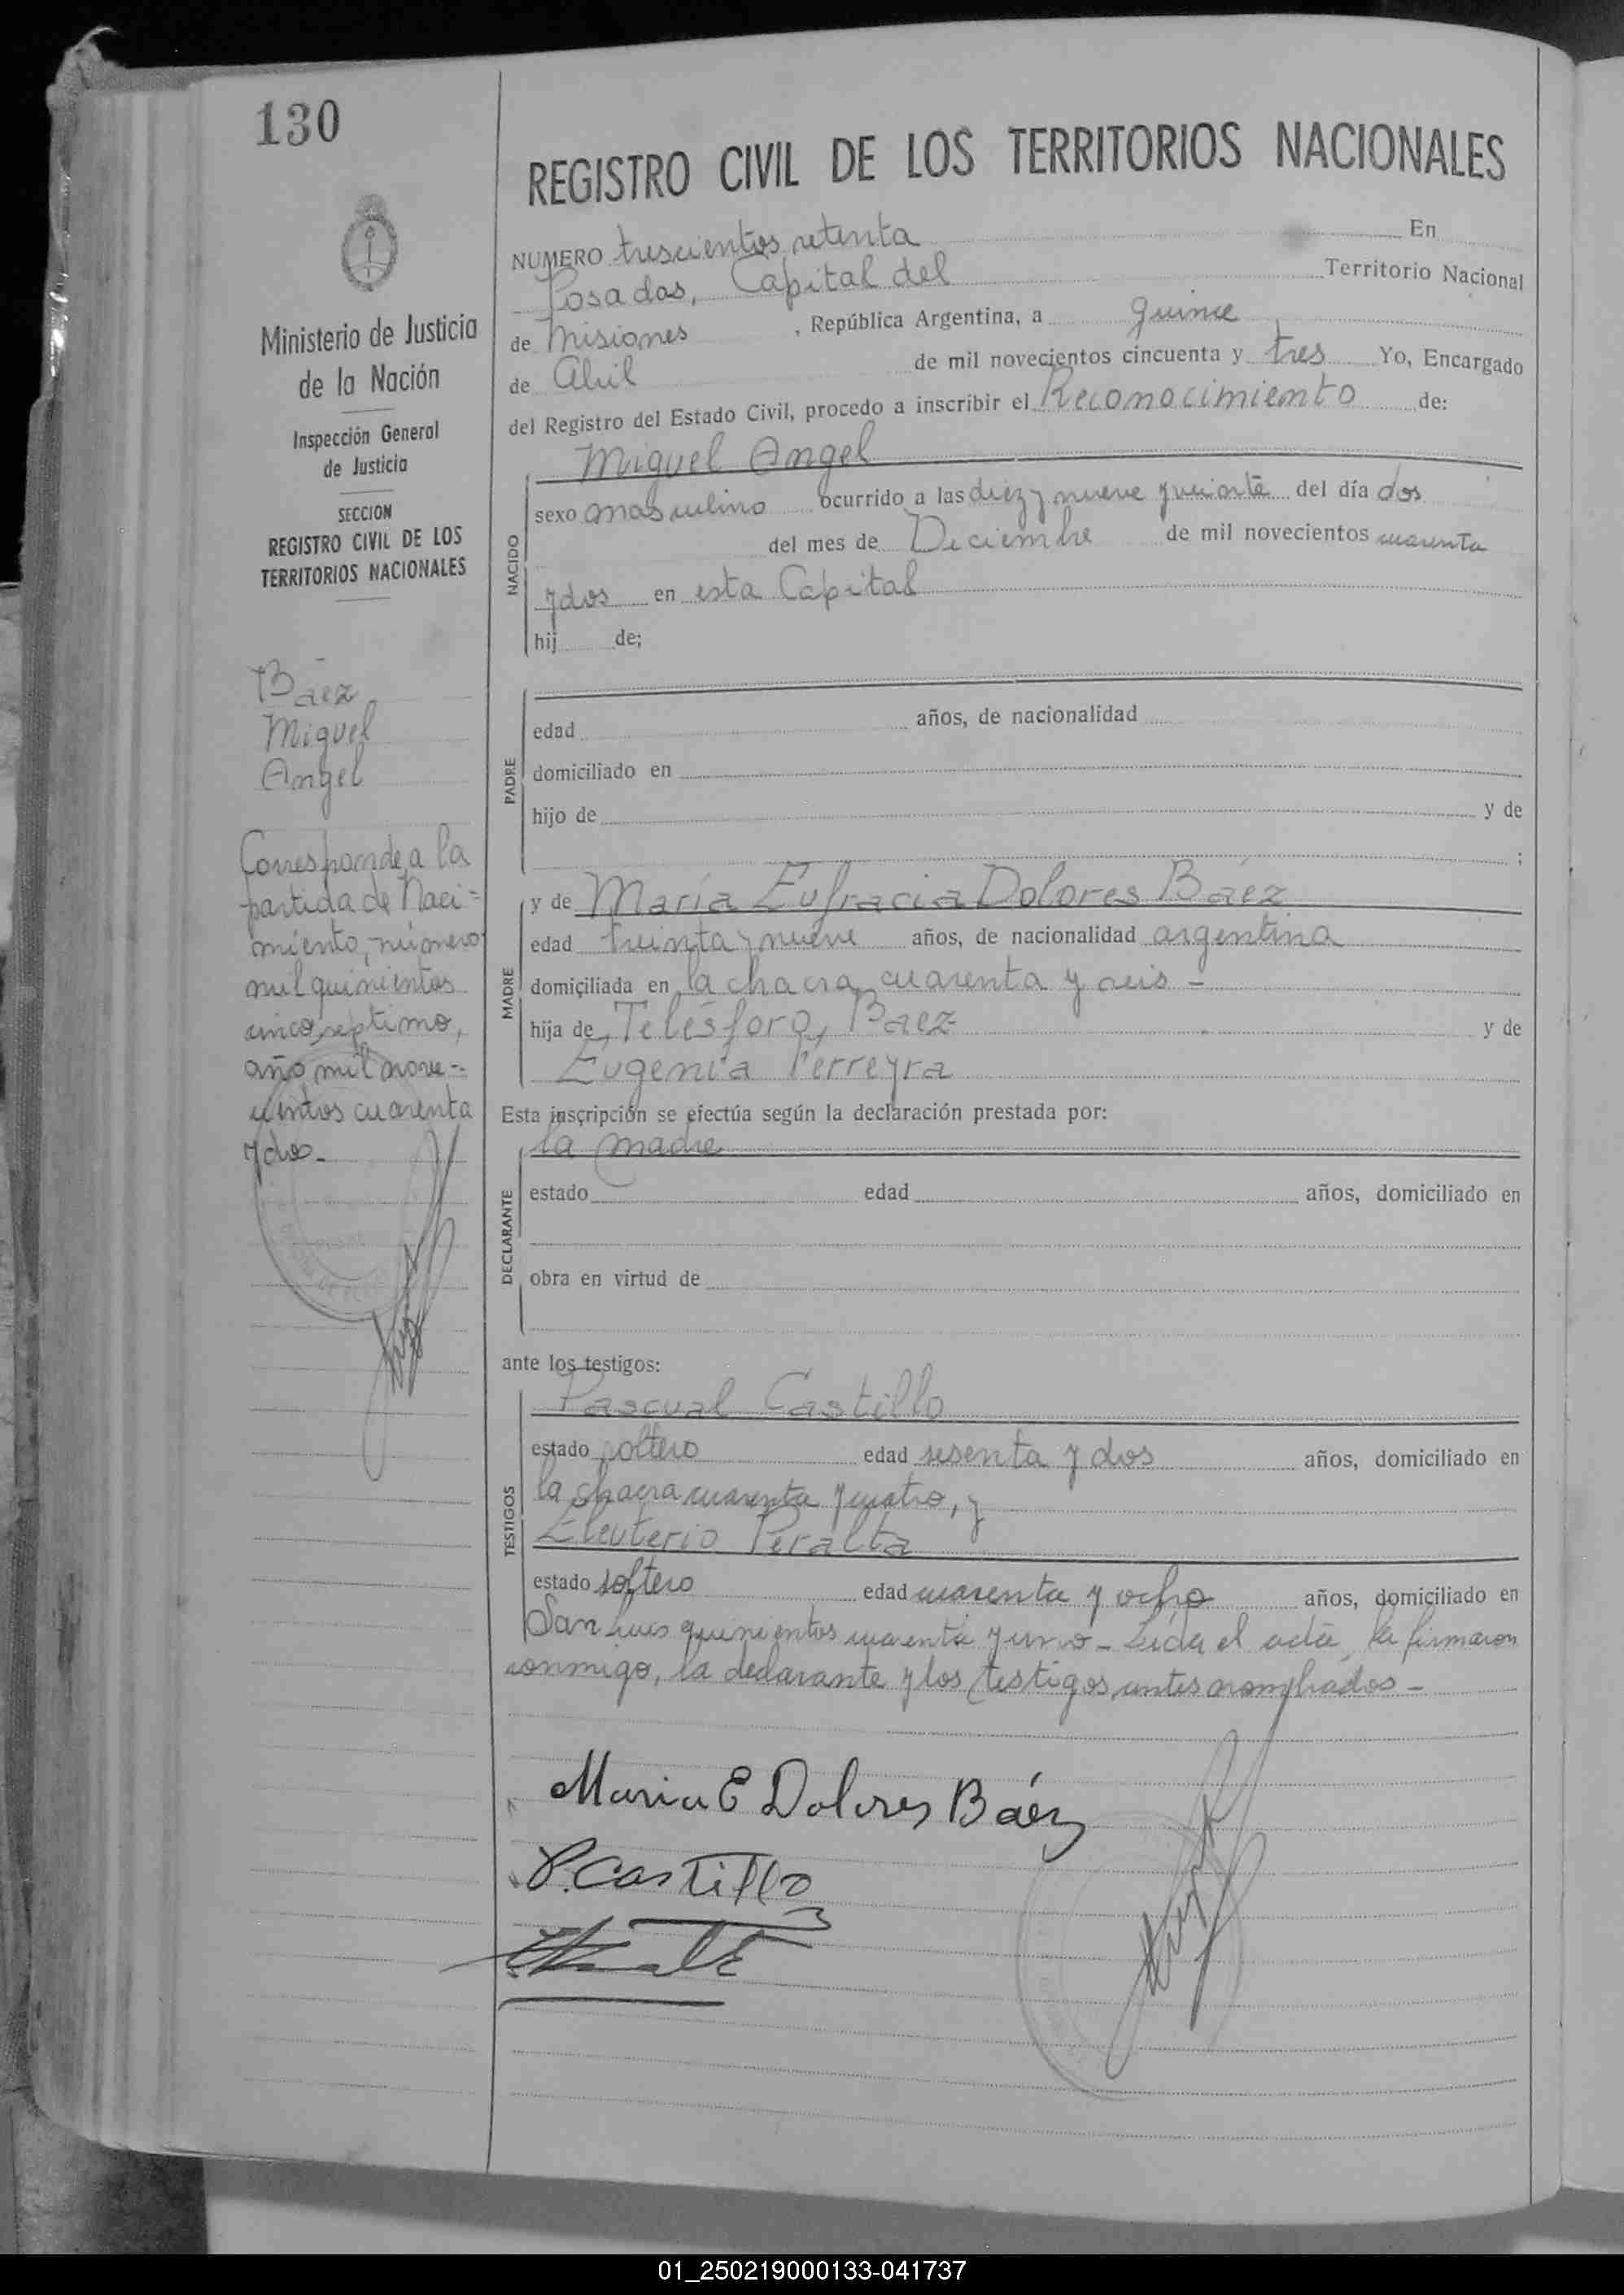 130
REGISTRO CIVIL DE LOS TERRITORIOS NACIONALES
Ministerio de Justicia
de la Nación
Inspección General
de Justicia
SECCION
REGISTRO CIVIL DE LOS
TERRITORIOS NACIONALES
Báez
Miguel
Angel
Corresponde a la
partida de Naci=
miento, número
mil quinientos
cinco, septimo,
año mil nove-
cientos cuarenta
y dos-
NUMERO trescientos setenta En
Posadas, Capital del Territorio Nacional
de Misiones , República Argentina, a quince
de Abril de mil novecientos cincuenta y tres Yo, Encargado
del Registro del Estado Civil, procedo a inscribir el Reconocimiento de:
NACIDO
Miguel Angel
sexo masculino ocurrido a las diez y nueve y veinte del día dos
del mes de Diciembre de mil novecientos cuarenta
y dos en esta Capital
hij de;
PADRE
edad años, de nacionalidad
domiciliado en
hijo de y de
;
MADRE
y de María Eufracia Dolores Báez
edad treinta y nueve años, de nacionalidad argentina
domiciliada en la chacra cuarenta y seis -
hija de Telésforo Báez y de
Eugenia Perreyra
Esta inscripción se efectúa según la declaración prestada por:
la madre
DECLARANTE
estado edad años, domiciliado en
obra en virtud de
ante los testigos:
TESTIGOS
Pascual Castillo
estado soltero edad sesenta y dos años, domiciliado en
la chacra cuarenta y cuatro, y
Eleuterio Peralta
estado soltero edad cuarenta y ocho años, domiciliado en
San Luis quinientos cuarenta y uno - Leída el acta, la firmaron
conmigo, la declarante y los testigos antes nombrados -
Maria E Dolores Báez
P. Castillo
01_250219000133-041737